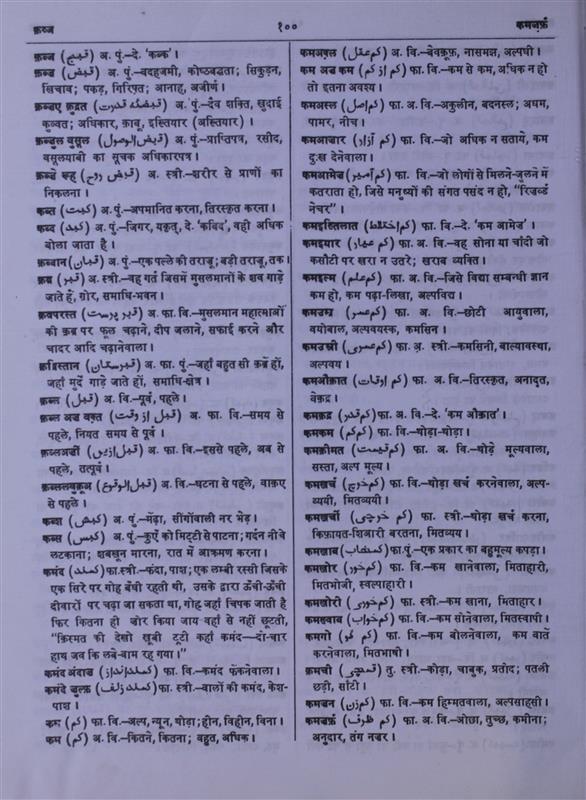 क़ब्ज
१००
कमज़र्फ़
क़ब्ज (قبج) अ. पुं.–दे. 'कब्क'।
क़ब्ज़ (قبض) अ. पुं.–बदहज़मी, कोष्ठबद्धता; सिकुड़न,
खिंचाव; पकड़, गिरिफ़्त; आनाह, अजीर्ण।
क़ब्ज़ए क़ुद्रत (قبضۂ قدرت) अ. पुं–दैव शक्ति, ख़ुदाई
क़ुव्वत; अधिकार, क़ाबू, इख़्तियार (अख़्तियार)।
क़ब्ज़ुल वुसूल (قبض الوصول) अ. पुं.–प्राप्तिपत्र, रसीद,
वसूलयाबी का सूचक अधिकारपत्र।
क़ब्ज़े रूह (قبض روح) अ. स्त्री.–शरीर से प्राणों का
निकलना।
कब्त (کبت) अ. पुं.–अपमानित करना, तिरस्कृत करना।
कब्द (کبد) अ. पुं.–जिगर, यकृत्, दे. 'कबिद', वही अधिक
बोला जाता है।
क़ब्बान (قبان) अ. पुं.–एक पल्ले की तराज़ू; बड़ी तराज़ू, तक।
क़ब्र (قبر) अ. स्त्री.–वह गर्त जिसमें मुसलमानों के शव गाड़े
जाते हैं, गोर, समाधि-भवन।
क़ब्रपरस्त (قبر پرست) अ. फा. वि.–मुसलमान महात्माओं
की क़ब्र पर फूल चढ़ाने, दीप जलाने, सफ़ाई करने और
चादर आदि चढ़ानेवाला।
क़ब्रिस्तान (قبرستان) अ. फा. पुं.–जहाँ बहुत सी क़ब्रें हों,
जहाँ मुर्दे गाड़े जाते हों, समाधि-क्षेत्र।
क़ब्ल (قبل) अ. वि.–पूर्व, पहले।
क़ब्ल अज़ वक़्त (قبل از وقت) अ. फा. वि.–समय से
पहले, नियत समय से पूर्व।
क़ब्लअज़ीं (قبل ازیں) अ. फा. वि.–इससे पहले, अब से
पहले, तत्पूर्व।
क़ब्ललवुक़ूअ (قبل الوقوع) अ. वि.–घटना से पहले, वाक़ए
से पहले।
कब्श (کبش) अ. पुं.–मेंढा, सींगोंवाली नर भेड़।
कब्स (کبس) अ. पुं.–कुएँ को मिट्टी से पाटना; गर्दन नीचे
लटकाना; शबख़ून मारना, रात में आक्रमण करना।
कमंद (کمند) फा. स्त्री.–फंदा, पाश; एक लम्बी रस्सी जिसके
एक सिरे पर गोह बँधी रहती थी, उसके द्वारा ऊँची-ऊँची
दीवारों पर चढ़ा जा सकता था, गोह जहाँ चिपक जाती है
फिर कितना ही ज़ोर किया जाय वहाँ से नहीं छूटती,
"क़िस्मत की देखो ख़ूबी टूटी कहाँ कमंद—दो-चार
हाथ जब कि लबे-बाम रह गया।"
कमंद अंदाज़ (کمند انداز) फा. वि.–कमंद फेंकनेवाला।
कमंदे ज़ुल्फ़ (کمند زلف) फा. स्त्री.–बालों की कमंद, केश-
पाश।
कम (کم) फा. वि.–अल्प, न्यून, थोड़ा; हीन, विहीन, बिना।
कम (کم) अ. वि.–कितने, कितना; बहुत, अधिक।
कमअक़्ल (کم عقل) अ. वि.–बेवक़ूफ़, नासमझ, अल्पधी।
कम अज़ कम (کم از کم) फा. वि.–कम से कम, अधिक न हो
तो इतना अवश्य।
कमअस्ल (کم اصل) फा. अ.–अकुलीन, बदनस्ल; अधम,
पामर, नीच।
कमआज़ार (کم آزار) फा. वि.–जो अधिक न सताये, कम
दुःख देनेवाला।
कमआमेज़ (کم آمیز) फा. वि.–जो लोगों से मिलने-जुलने में
कतराता हो, जिसे मनुष्यों की संगत पसंद न हो, "रिज़र्व्ड
नेचर"।
कमइख़्तिलात (کم اختلاط) फा. वि.–दे. 'कम आमेज़'।
कमइयार (کم عیار) फा. अ. वि.–वह सोना या चांदी जो
कसौटी पर खरा न उतरे; ख़राब व्यक्ति।
कमइल्म (کم علم) फा. अ. वि.–जिसे विद्या सम्बन्धी ज्ञान
कम हो, कम पढ़ा-लिखा, अल्पविद्य।
कमउम्र (کم عمر) फा. अ. वि.–छोटी आयुवाला,
वयोबाल, अल्पवयस्क, कमसिन।
कमउम्री (کم عمری) फा. अ. स्त्री.–कमसिनी, बाल्यावस्था,
अल्पवय।
कमऔक़ात (کم اوقات) फा. अ. वि.–तिरस्कृत, अनादृत,
बेक़द्र।
कमक़द्र (کم قدر) फा. अ. वि.–दे. 'कम औक़ात'।
कमकम (کم کم) फा. वि.–थोड़ा-थोड़ा।
कमक़ीमत (کم قیمت) फा. अ. वि.–थोड़े मूल्यवाला,
सस्ता, अल्प मूल्य।
कमख़र्च (کم خرچ) फा. वि.–थोड़ा ख़र्च करनेवाला, अल्प-
व्ययी, मितव्ययी।
कमख़र्ची (کم خرچی) फा. स्त्री.–थोड़ा ख़र्च करना,
किफ़ायत-शिआरी बरतना, मितव्यय।
कमख़ाब (کمخاب) फा. पुं.–एक प्रकार का बहुमूल्य कपड़ा।
कमख़ोर (کم خور) फा. वि.–कम खानेवाला, मिताहारी,
मितभोजी, स्वल्पाहारी।
कमख़ोरी (کم خوری) फा. स्त्री.–कम खाना, मिताहार।
कमख़्वाब (کم خواب) फा. वि.–कम सोनेवाला, मितस्वापी।
कमगो (کم گو) फा. वि.–कम बोलनेवाला, कम बातें
करनेवाला, मितभाषी।
क़मची (قمچی) तु. स्त्री.–कोड़ा, चाबुक, प्रतोद; पतली
छड़ी, साँटी।
कमज़न (کم زن) फा. वि.–कम हिम्मतवाला, अल्पसाहसी।
कमज़र्फ़ (کم ظرف) फा. अ. वि.–ओछा, तुच्छ, कमीना;
अनुदार, तंग नज़र।